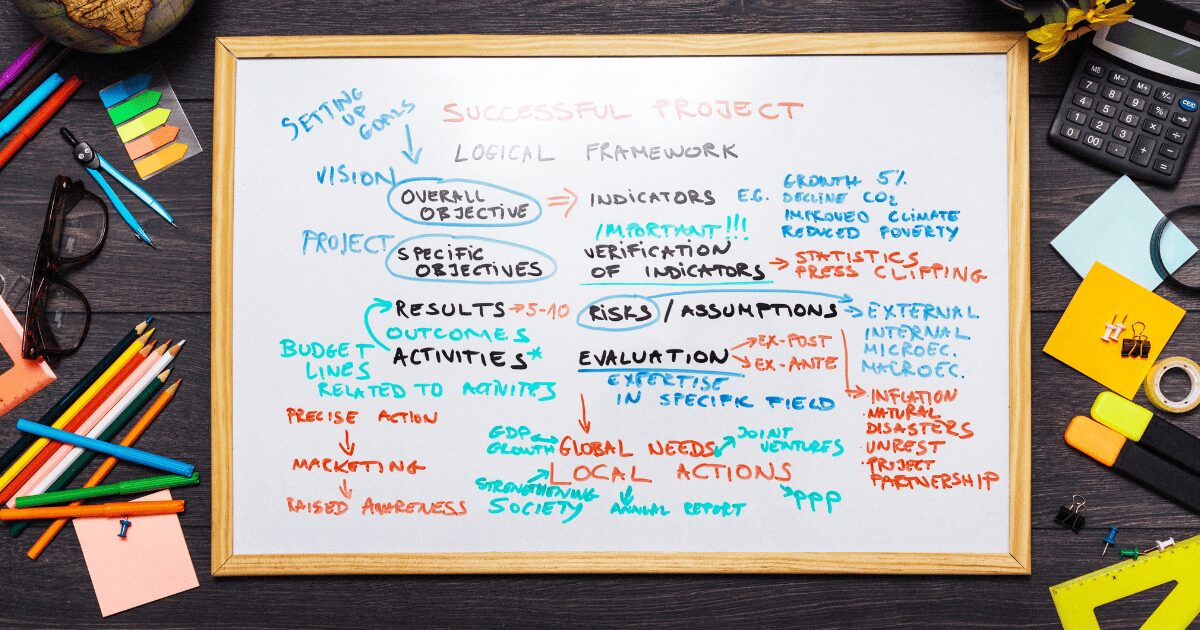 SETTING
UP
GOALS
SUCCESSFUL PROJECT
LOGICAL FRAMEWORK
VISION
OVERALL
OBJECTIVE
INDICATORS
E.G.
GROWTH 5%
DECLINE CO2
IMPROVED CLIMATE
REDUCED POVERTY
PROJECT
SPECIFIC
OBJECTIVES
IMPORTANT!!!
VERIFICATION
OF INDICATORS
STATISTICS
PRESS CLIPPING
RESULTS → 5-10
OUTCOMES
ACTIVITIES*
RISKS / ASSUMPTIONS
EXTERNAL
INTERNAL
MICROEC.
MACROEC.
BUDGET
LINES
RELATED TO ACTIVITES
EVALUATION
EX-POST
EX-ANTE
EXPERTISE
IN SPECIFIC FIELD
INFLATION
· NATURAL
DISASTERS
· UNREST
· PROJECT
PARTNERSHIP
PRECISE ACTION
MARKETING
RAISED AWARENESS
GDP
GROWTH
GLOBAL NEEDS
JOINT
VENTURES
LOCAL ACTIONS
STRENGTHENING
SOCIETY
ANNUAL REPORT
PPP
MC
M-
M+
7
8
9
%
4
5
6
1
2
3
0
00